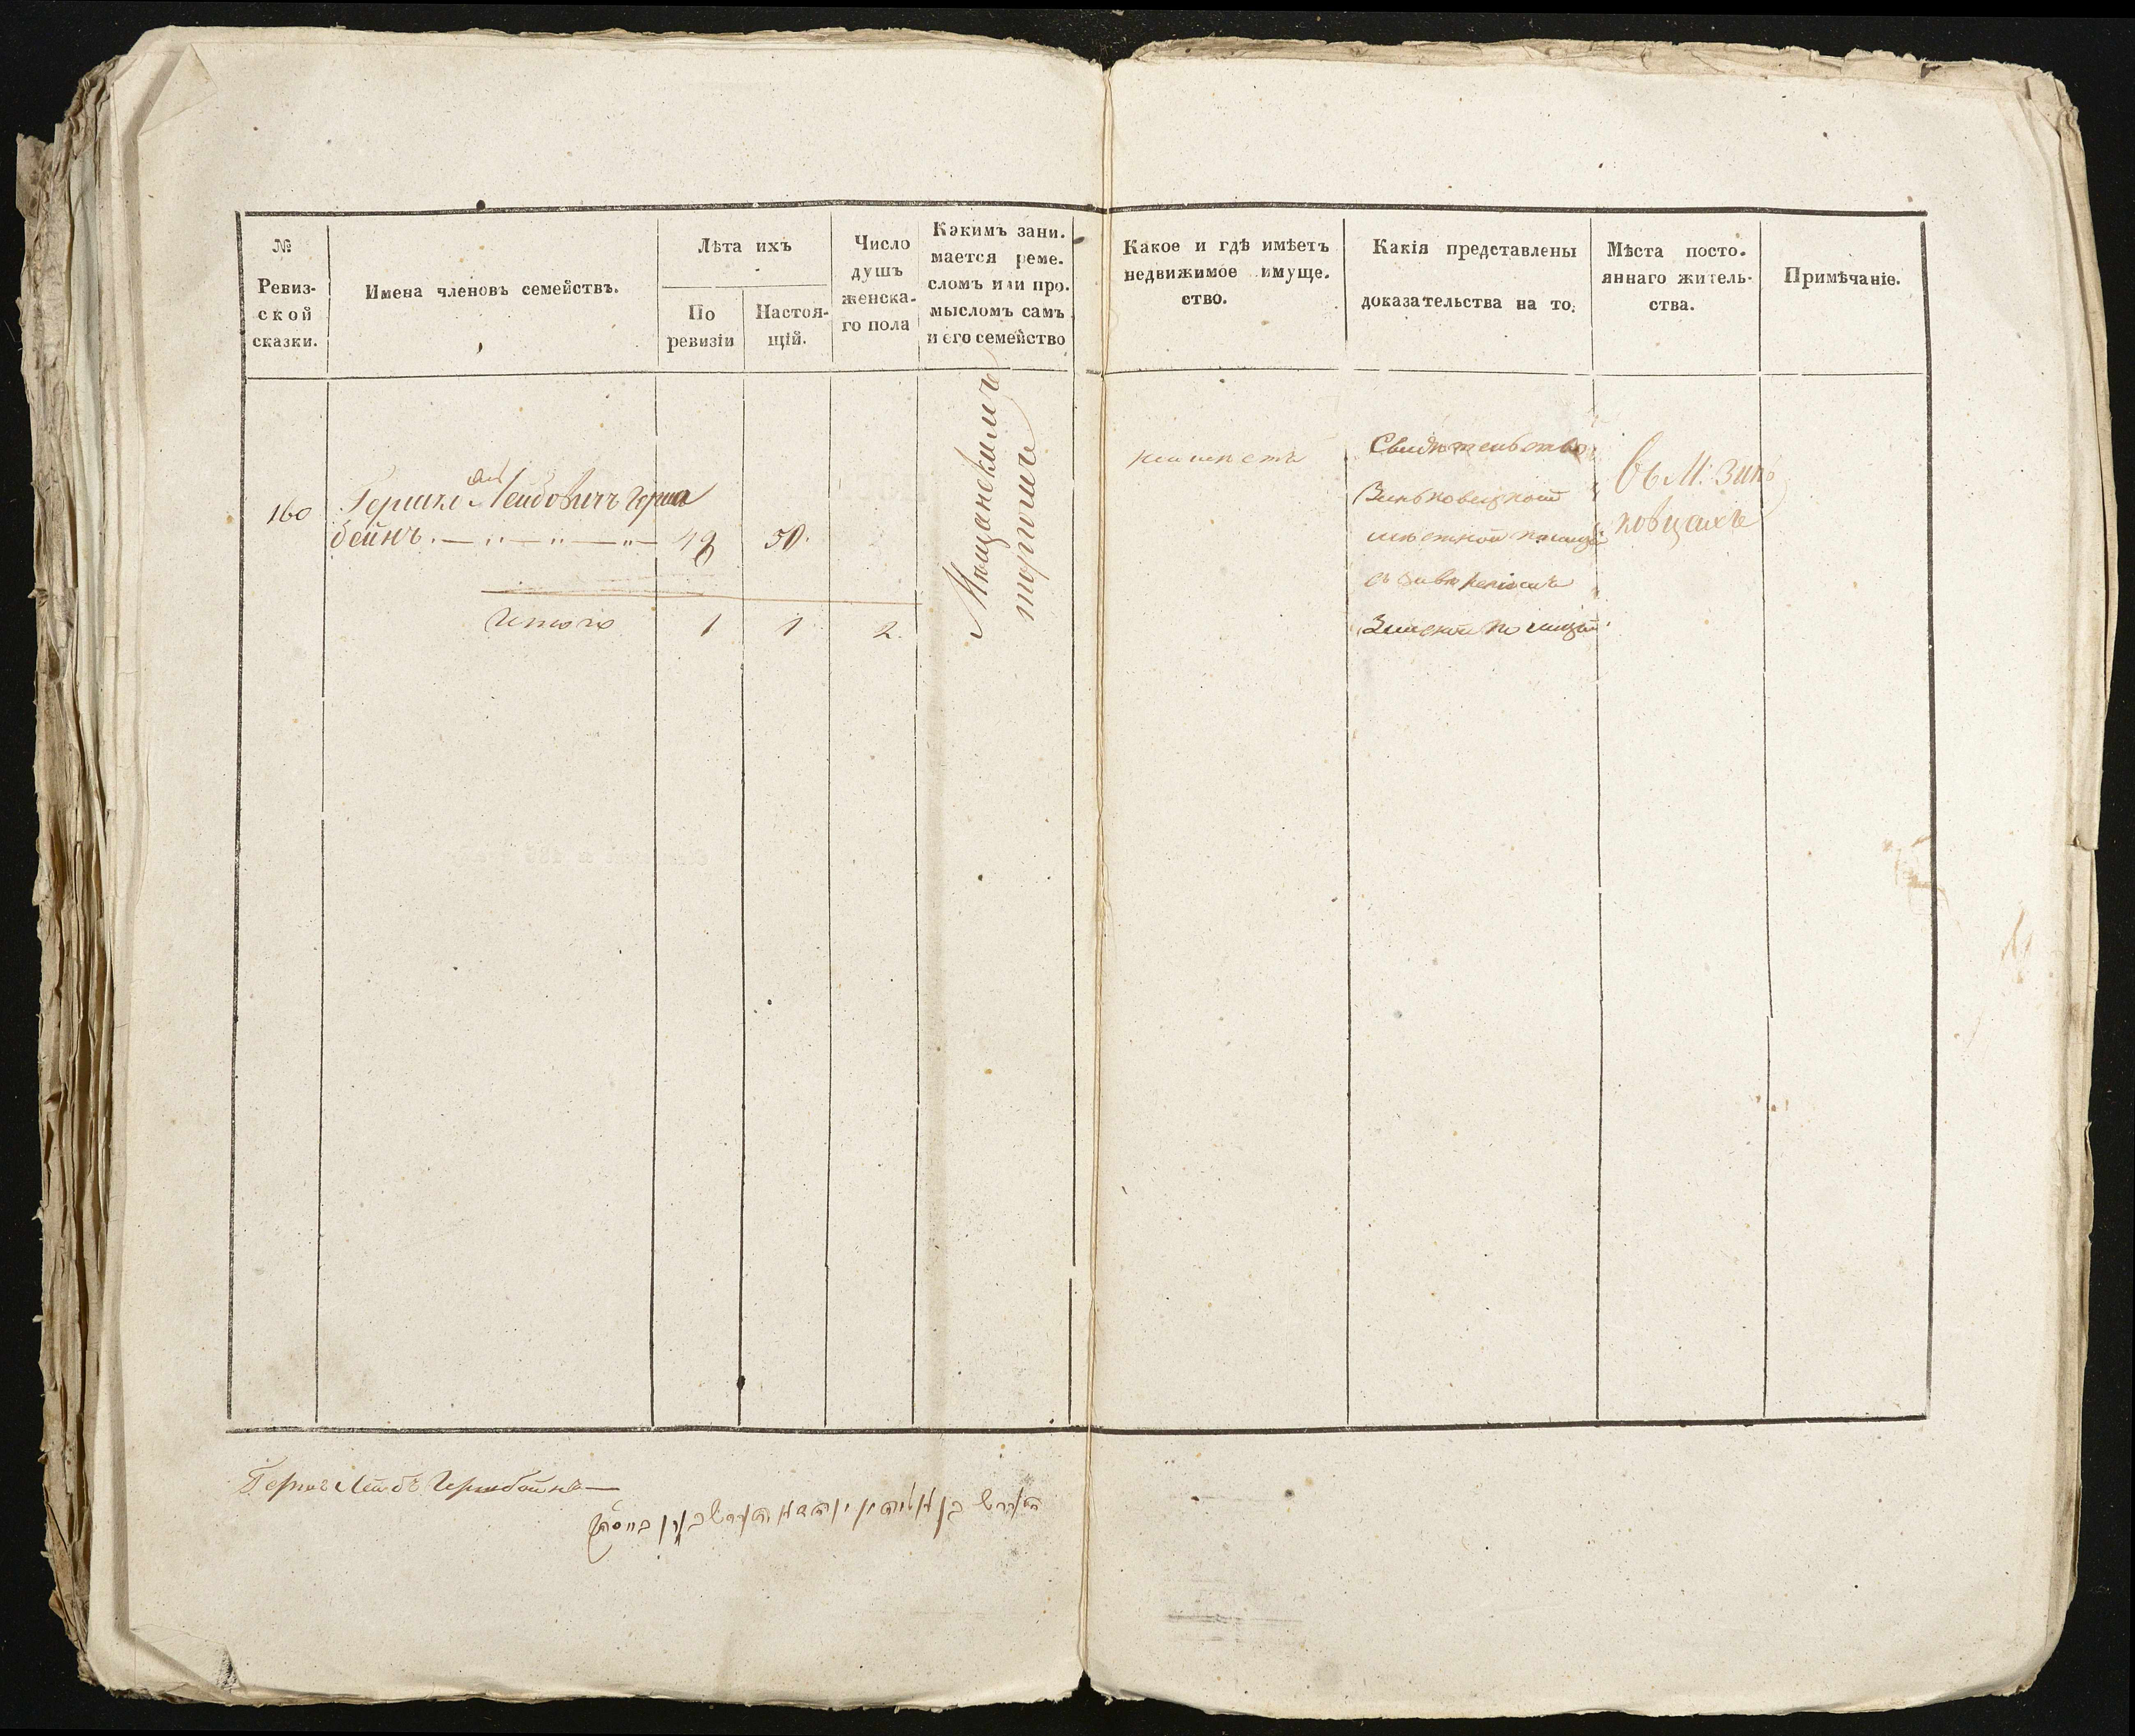 № Ревиз-
ской
сказки.
Имена членовъ семействъ.
Лѣта ихъ
По
ревизіи
Настоя-
щій.
Число
душъ
женска-
го пола
Какимъ зани-
мается реме-
сломъ или про-
мысломъ самъ
и его семейство
Какое и гдѣ имѣетъ
недвижимое имуще-
ство.
Какія представлены
доказательства на то.
Мѣста посто-
яннаго житель-
ства.
Примѣчаніе.
160
Гершко Лейбовичъ Герш
бейнъ. — „ — „ — „ — 49 50.
Мѣщанскимъ
торгомъ
неимѣетъ
Свидѣтельство
Зиньковецкой
мѣстной полиціи
съ завѣреніемъ
Земской полиціи
Въ М: Зинь
ковцахъ
Итого 1 1 2.
Гершъ Лейбъ Гершбейнъ —